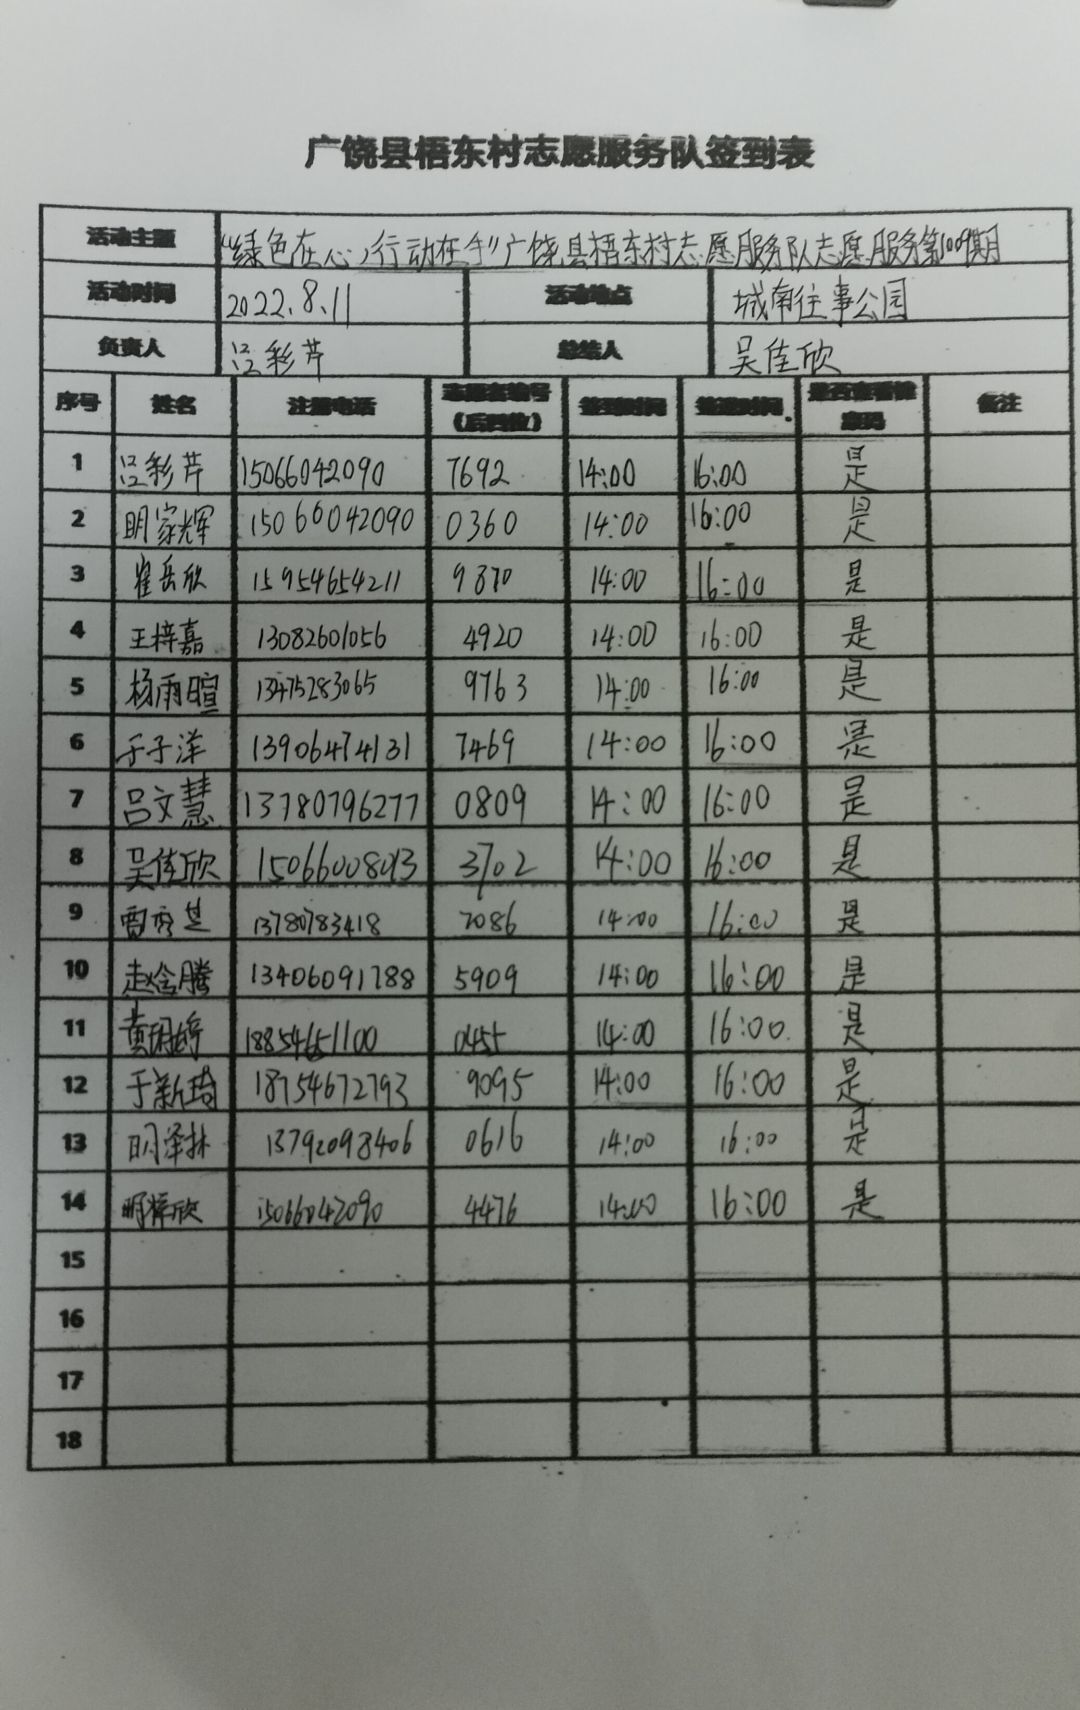 广饶县梧东村志愿服务队签到表
活动主题 “绿色在心,行动在手”广饶县梧东村志愿服务队志愿服务第1009期
活动时间 2022.8.11 活动地点 城南往事公园
负责人 吕彩芹 总结人 吴佳欣
序号 姓名 注册电话 志愿者编号(后四位) 签到时间 签退时间 是否查看健康码 备注
1 吕彩芹 15066042090 7692 14:00 16:00 是
2 明家辉 15066042090 0360 14:00 16:00 是
3 崔岳欣 15954654211 9870 14:00 16:00 是
4 王梓嘉 13082601056 4920 14:00 16:00 是
5 杨雨暄 13475283065 9763 14:00 16:00 是
6 于子洋 13906474131 7469 14:00 16:00 是
7 吕文慧 13780796277 0809 14:00 16:00 是
8 吴佳欣 15066008013 3702 14:00 16:00 是
9 13780783418 2086 14:00 16:00 是
10 赵含腾 13406091788 5909 14:00 16:00 是
11 黄 18854651100 0455 14:00 16:00 是
12 于新琦 18754672793 9095 14:00 16:00 是
13 明泽林 13792098406 0616 14:00 16:00 是
14 明梓欣 15066042090 4476 14:00 16:00 是
15
16
17
18